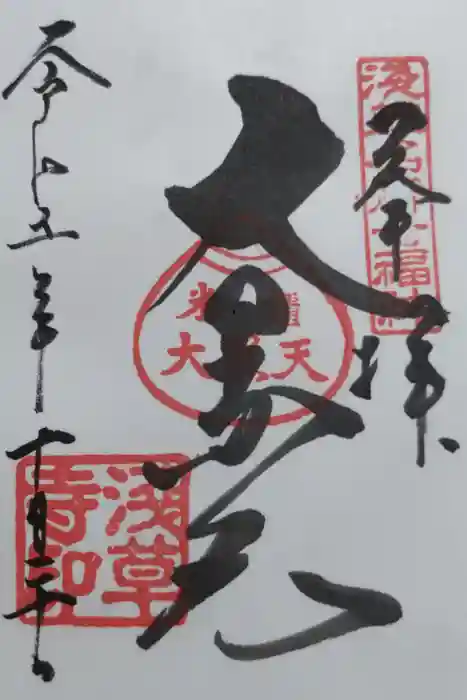 浅草名所七福神
奉拝
大黒天
大黒天
淺草
寺印
令和五年十月二十日